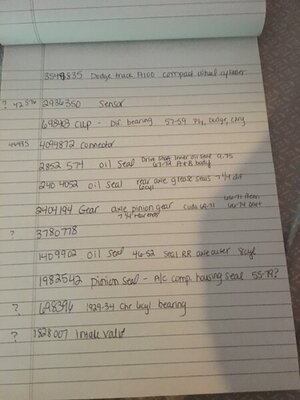 Dodge truck A100 compact wheel cylinder
? 2936350 Sensor
698403 Cup - Dif. bearing 57-59 Ply, Dodge, Chry
4094872 Connector
2852 574 oil Seal Drive Shaft Inner oil seal 9.75
240 4052 oil seal rear axle grease seals 7 1/4 diff
6cyl
2404194 Gear axle pinion gear Cuda 64-71
7 1/4 rear ends
? 3780778
1409902 oil Seal 46-52 Seal RR axle outer 8cyl
1982542 pinion seal - A/c comp. housing seal 55-79?
? 698396 1929-34 Chr 6cyl bearing
? 1828007 Intake valve